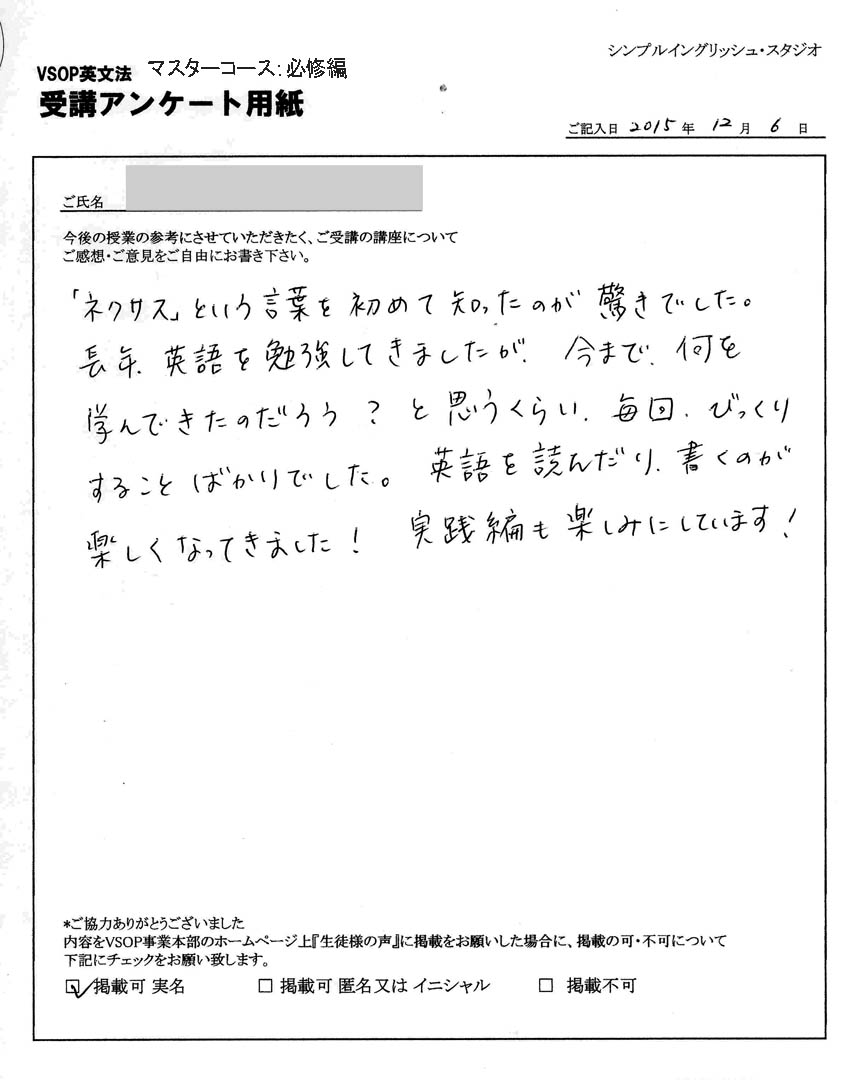 シンプルイングリッシュ・スタジオ
VSOP英文法 マスターコース:必修編
受講アンケート用紙
ご記入日 2015 年 12 月 6 日
ご氏名
今後の授業の参考にさせていただきたく、ご受講の講座について
ご感想・ご意見をご自由にお書き下さい。
「ネクサス」という言葉を初めて知ったのが驚きでした。
長年、英語を勉強してきましたが、今まで、何を
学んできたのだろう?と思うくらい、毎回、びっくり
することばかりでした。英語を読んだり、書くのが
楽しくなってきました!実践編も楽しみにしています!
*ご協力ありがとうございました
内容をVSOP事業本部のホームページ上『生徒様の声』に掲載をお願いした場合に、掲載の可・不可について
下記にチェックをお願い致します。
☑ 掲載可 実名 □ 掲載可 匿名又は イニシャル □ 掲載不可